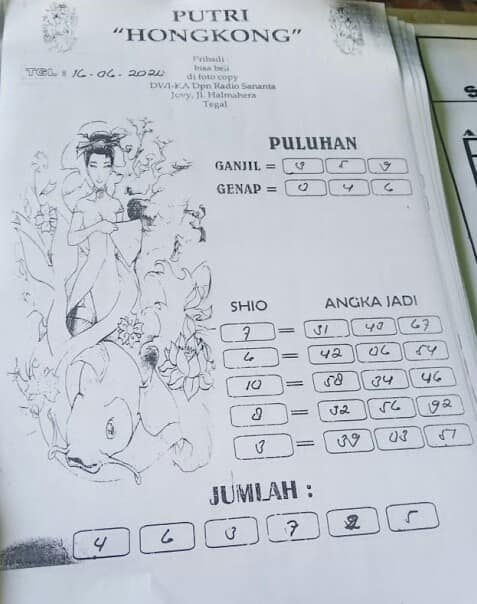 PUTRI
“HONGKONG”
Pribadi
bisa beli
di foto copy
DWI-KA Dpn Radio Sananta
Jovy, Jl. Halmahera
Tegal
TGL : 16-06-2024
PULUHAN
GANJIL = 3 5 9
GENAP = 0 4 6
SHIO ANGKA JADI
7 = 31 40 67
6 = 42 06 54
10 = 58 34 46
8 = 32 56 92
3 = 39 03 51
JUMLAH :
4 6 3 7 2 5